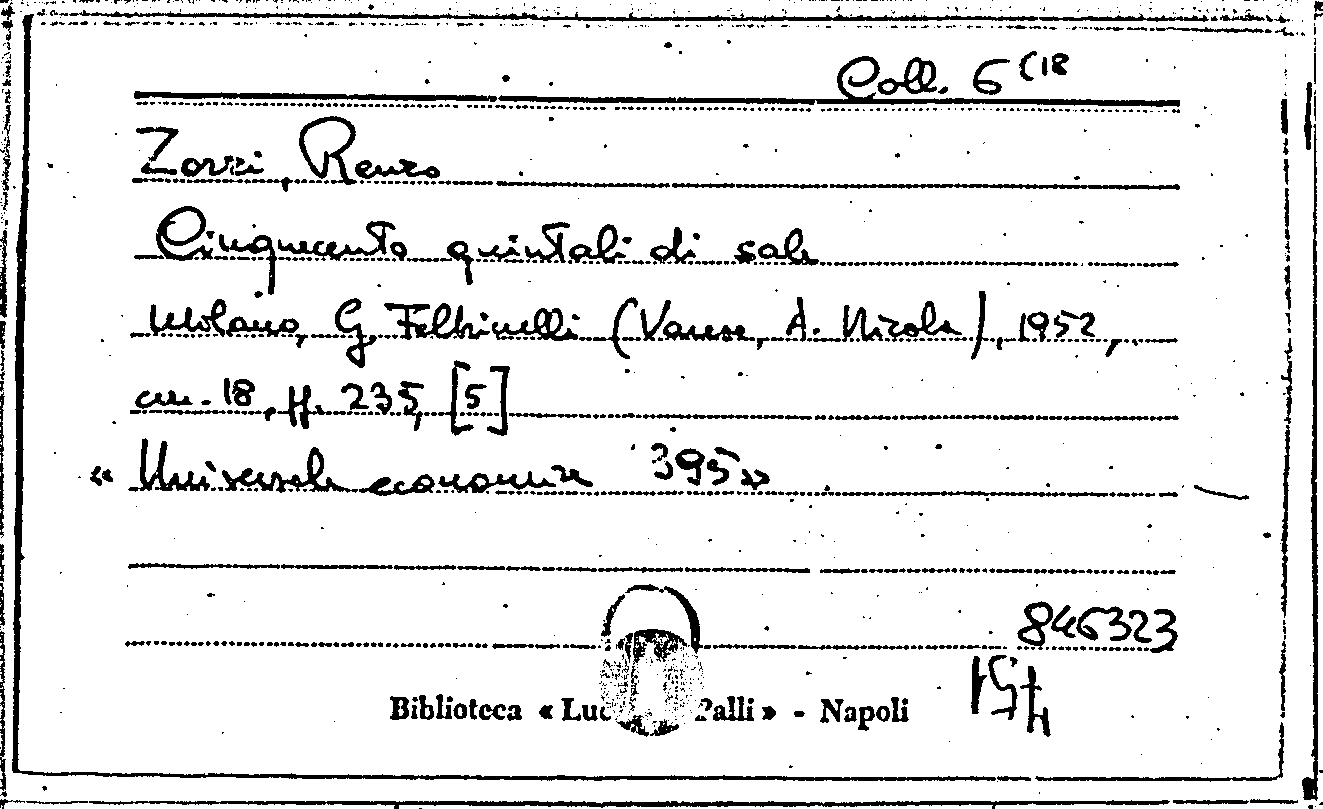 Coll. 6 (18
Zorzi, Renzo
Cinquecento quintali di sale
Milano, G. Feltrinelli (Varese, A. Nicola), 1952,
cm. 18, pp. 235, [5]
« Universale economica 395 »
846323
Biblioteca « Luc Palli » - Napoli